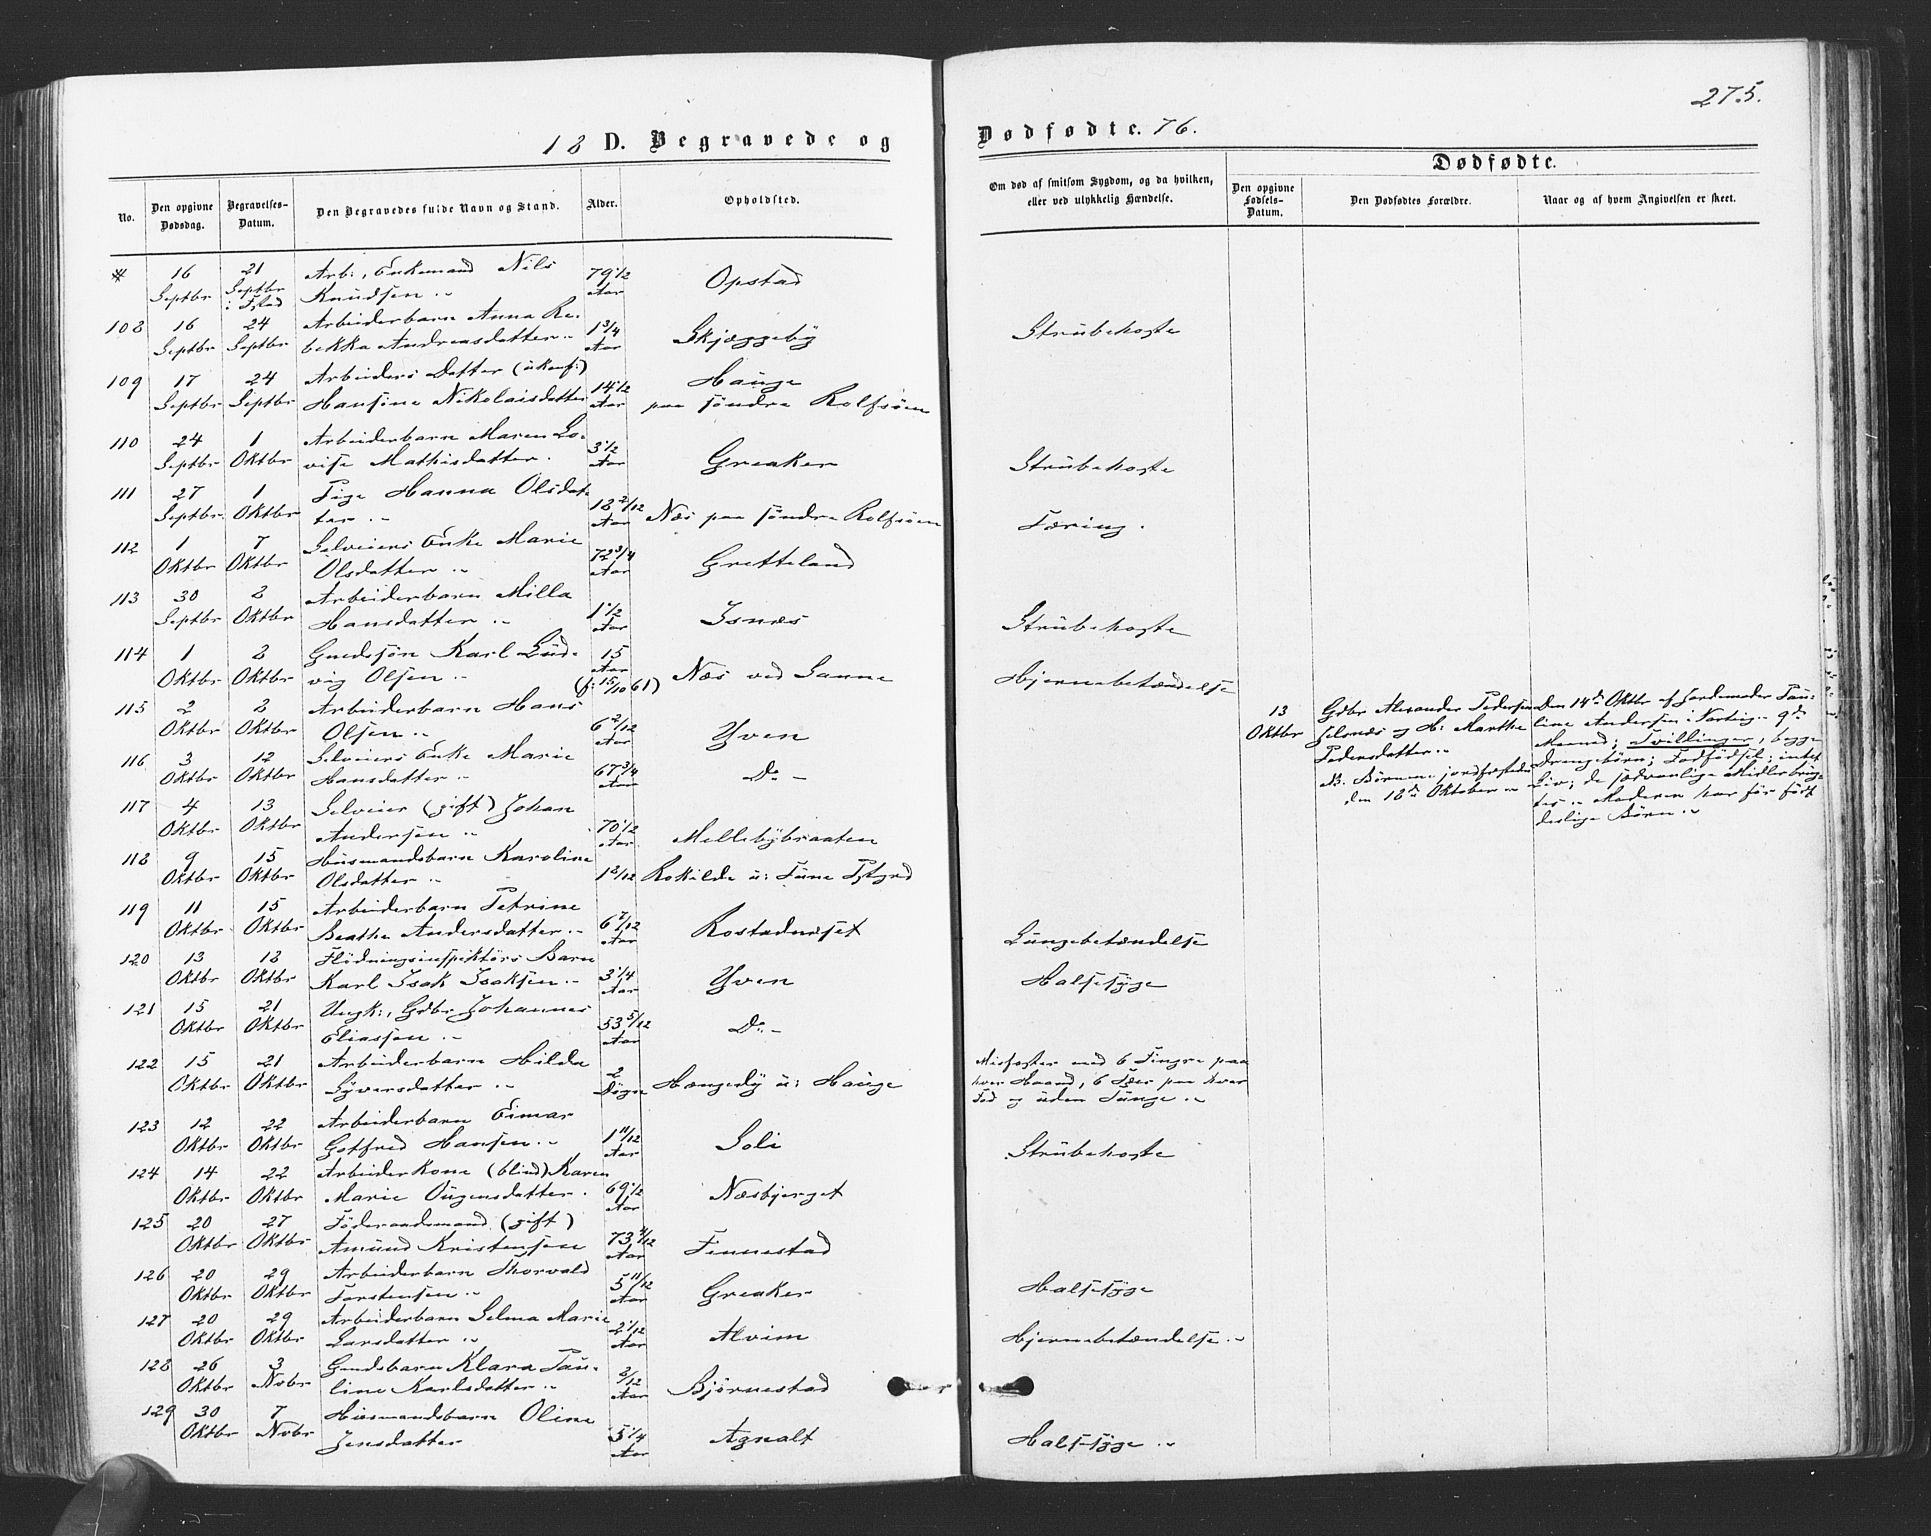 275.
18 D. Begravede og Dødfødte. 76.
Dødfødte.
No.
Den opgivne Dødsdag.
Begravelses-Datum.
Den Begravedes fulde Navn og Stand.
Alder.
Opholdsted.
Om død af smitsom Sygdom, og da hvilken, eller ved ulykkelig Hændelse.
Den opgivne Fødsels-Datum.
Den Dødfødtes Forældre.
Naar og af hvem Angivelsen er skeet.
* 16 Septbr 21 Septbr Arb:, Enkemand Nils Knudsen 79 1/2 Aar Opstad
108 16 Septbr 24 Septbr Arbeiderbarn Anna Rebekka Andreasdatter 1 3/4 Aar Skjæggeby Strubehoste
109 17 Septbr 24 Septbr Arbeiders Datter (ukonf:) Hansine Nikolaisdatter 14 1/2 Aar Hauge paa søndre Rolfsøen
110 24 Septbr 1 Oktbr Arbeiderbarn Maren Lovise Mathisdatter 3 1/2 Aar Greaker Strubehoste
111 27 Septbr 1 Oktbr Pige Hanna Olsdatter 18 2/12 Aar Næs paa søndre Rolfsøen Tæring.
112 1 Oktbr 7 Oktbr Selveiers Enke Marie Olsdatter 72 3/4 Aar Gretteland
113 30 Septbr 8 Oktbr Arbeiderbarn Milla Hansdatter 1 1/2 Aar Isnæs Strubehoste
114 1 Oktbr 8 Oktbr Gaardssøn Karl Ludvig Olsen 15 Aar (f: 15/10 61) Næs ved Sanne Hjernebetændelse
115 2 Oktbr 8 Oktbr Arbeiderbarn Hans Olsen 6 2/12 Aar Yven
116 3 Oktbr 12 Oktbr Selveiers Enke Marie Hansdatter 67 3/4 Aar Do -
117 4 Oktbr 13 Oktbr Selveier (gift) Johan Andersen 70 1/2 Aar Mellebybraaten
118 9 Oktbr 15 Oktbr Husmandsbarn Karoline Olsdatter Rokilde u: Tune
119 11 Oktbr 15 Oktbr Arbeiderbarn Petrine Beathe Andersdatter 6 7/12 Aar Rostadneset Lungebetændelse
120 13 Oktbr 18 Oktbr Flødningsinspektørs Barn Karl Isak Isaksen 3 1/4 Aar Yven Halssyge
121 15 Oktbr 21 Oktbr Ungk:, Gdbr Johannes Eliassen 53 5/12 Aar Do -
122 15 Oktbr 21 Oktbr Arbeiderbarn Hilda Syversdatter 2 Døgn Hængedy u: Hauge Misfoster med 6 Fingre paa hver Haand, 6 Tæer paa hver Fod og uden Tunge
123 12 Oktbr 22 Oktbr Arbeiderbarn Eimar Gotfred Hansen 1 11/12 Aar Soli Strubehoste
124 14 Oktbr 22 Oktbr Arbeiderkone (blind) Karen Marie Ougensdatter. 69 1/2 Aar Næsbjerget
125 20 Oktbr 27 Oktbr Føderaadsmand (gift) Amund Kristensen 73 4/12 Aar Finnestad
126 20 Oktbr 29 Oktbr Arbeiderbarn Thorvald Torstensen 5 11/12 Aar Greaker Halssyge
127 20 Oktbr 29 Oktbr Arbeiderbarn Selma Marie Larsdatter 2 1/2 Aar Alvim Hjernebetændelse
128 26 Oktbr 3 Novbr Gaardsbarn Klara Pauline Karlsdatter 2/12 Aar Bjørnestad
129 30 Oktbr 7 Novbr Husmandsbarn Oline Jensdatter 5 1/4 Aar Agnalt Halssyge
13 Oktbr
Gdbr Alexander Pedersen Selsnæs og H: Marthe Pedersdatter
B. Børnene jordfæstedes den 18de Oktober
Den 14de Oktbr af Jordemoder Pauline Andersen i 9de Maaned; Tvillinger, begge Drengebørn; Fodfødsel; intet Liv; de sædvanlige Midler brugtes. Moderen har før født deslige Børn